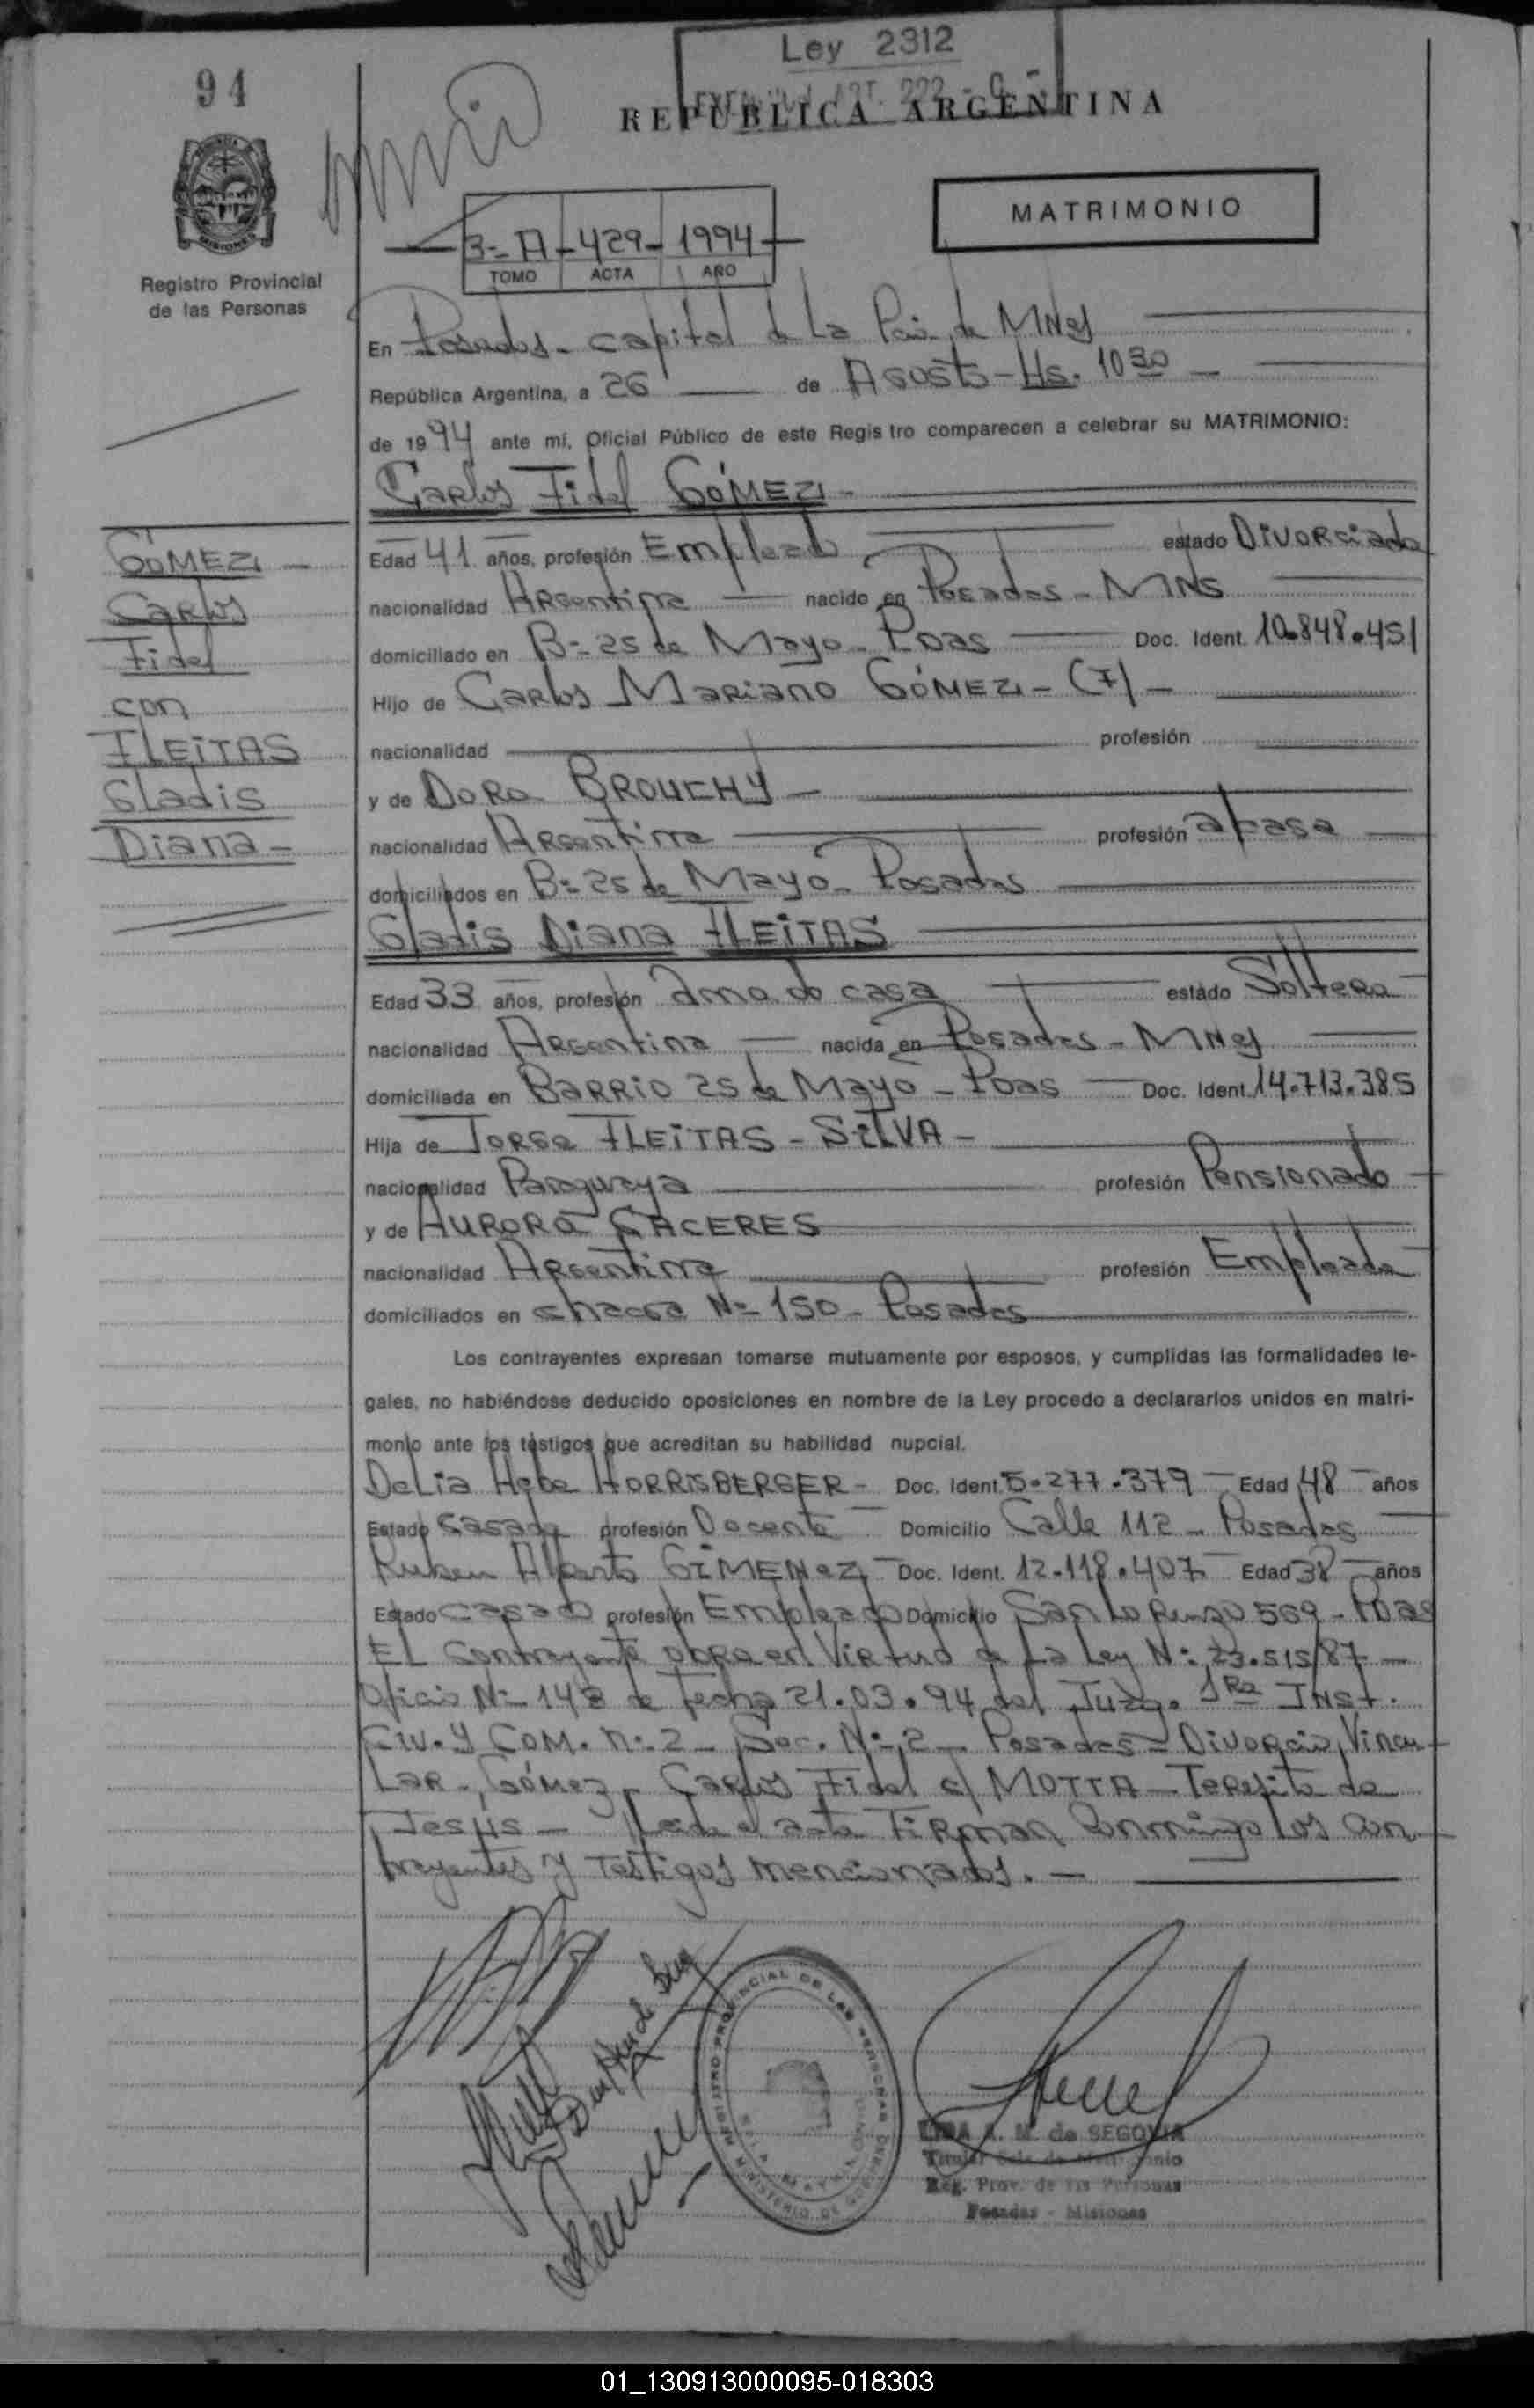 Ley 2312
94
REPUBLICA ARGENTINA
MATRIMONIO
MISIONES
3-A-429-1994
TOMO ACTA AÑO
Registro Provincial
de las Personas
En Posadas - capital de La Pcia. de MNes
República Argentina, a 26 de Agosto - Hs. 10 30
de 1994 ante mí, Oficial Público de este Regis tro comparecen a celebrar su MATRIMONIO:
Carlos Fidel GÓMEZ -
GÓMEZ -
Carlos
Fidel
con
FLEITAS
Gladis
Diana -
Edad 41 años, profesión Empleado estado Divorciado
nacionalidad Argentina nacido en Posadas - MNS
domiciliado en B= 25 de Mayo - Pdas Doc. Ident. 10.848.451
Hijo de Carlos Mariano GÓMEZ - (F) -
nacionalidad profesión
y de Dora BROUCHY -
nacionalidad Argentina profesión a/casa
domiciliados en B= 25 de Mayo - Posadas
Gladis Diana FLEITAS
Edad 33 años, profesión Ama de casa estado Soltera
nacionalidad Argentina nacida en Posadas - MNes
domiciliada en BARRIO 25 de Mayo - Pdas Doc. Ident. 14.713.385
Hija de Jorge FLEITAS - SILVA -
nacionalidad Paraguaya profesión Pensionado
y de AURORA CACERES
nacionalidad Argentina profesión Empleada
domiciliados en chacra Nº 150 - Posadas
Los contrayentes expresan tomarse mutuamente por esposos, y cumplidas las formalidades le-
gales, no habiéndose deducido oposiciones en nombre de la Ley procedo a declararlos unidos en matri-
monio ante los testigos que acreditan su habilidad nupcial.
Delia Hebe HORRISBERGER - Doc. Ident. 5.277.379 Edad 48 años
Estado Casada profesión Docente Domicilio Calle 112 - Posadas
Ruben Alberto GIMENEZ Doc. Ident. 12.118.407 Edad 38 años
Estado casado profesión Empleado Domicilio San Lorenzo 569 - Pdas
El Contrayente obra en Virtud de La Ley Nº 23.515/87 -
Oficio Nº 148 de fecha 21.03.94 del Juzg. 1Ra Inst.
Civ. y COM. nº 2 - Sec. Nº 2 - Posadas - Divorcio Vincu
Lar - Gómez, Carlos Fidel c/ MOTTA - Teresita de
Jesús - Leida el acta Firman Conmigo los con
trayentes y Testigos mencionados. -
REGISTRO PROVINCIAL DE LAS PERSONAS
MINISTERIO DE GOBIERNO
LIDA A. M. de SEGOVIA
Titular Sala de Matrimonio
Reg. Prov. de las Personas
Posadas - Misiones
01_130913000095-018303